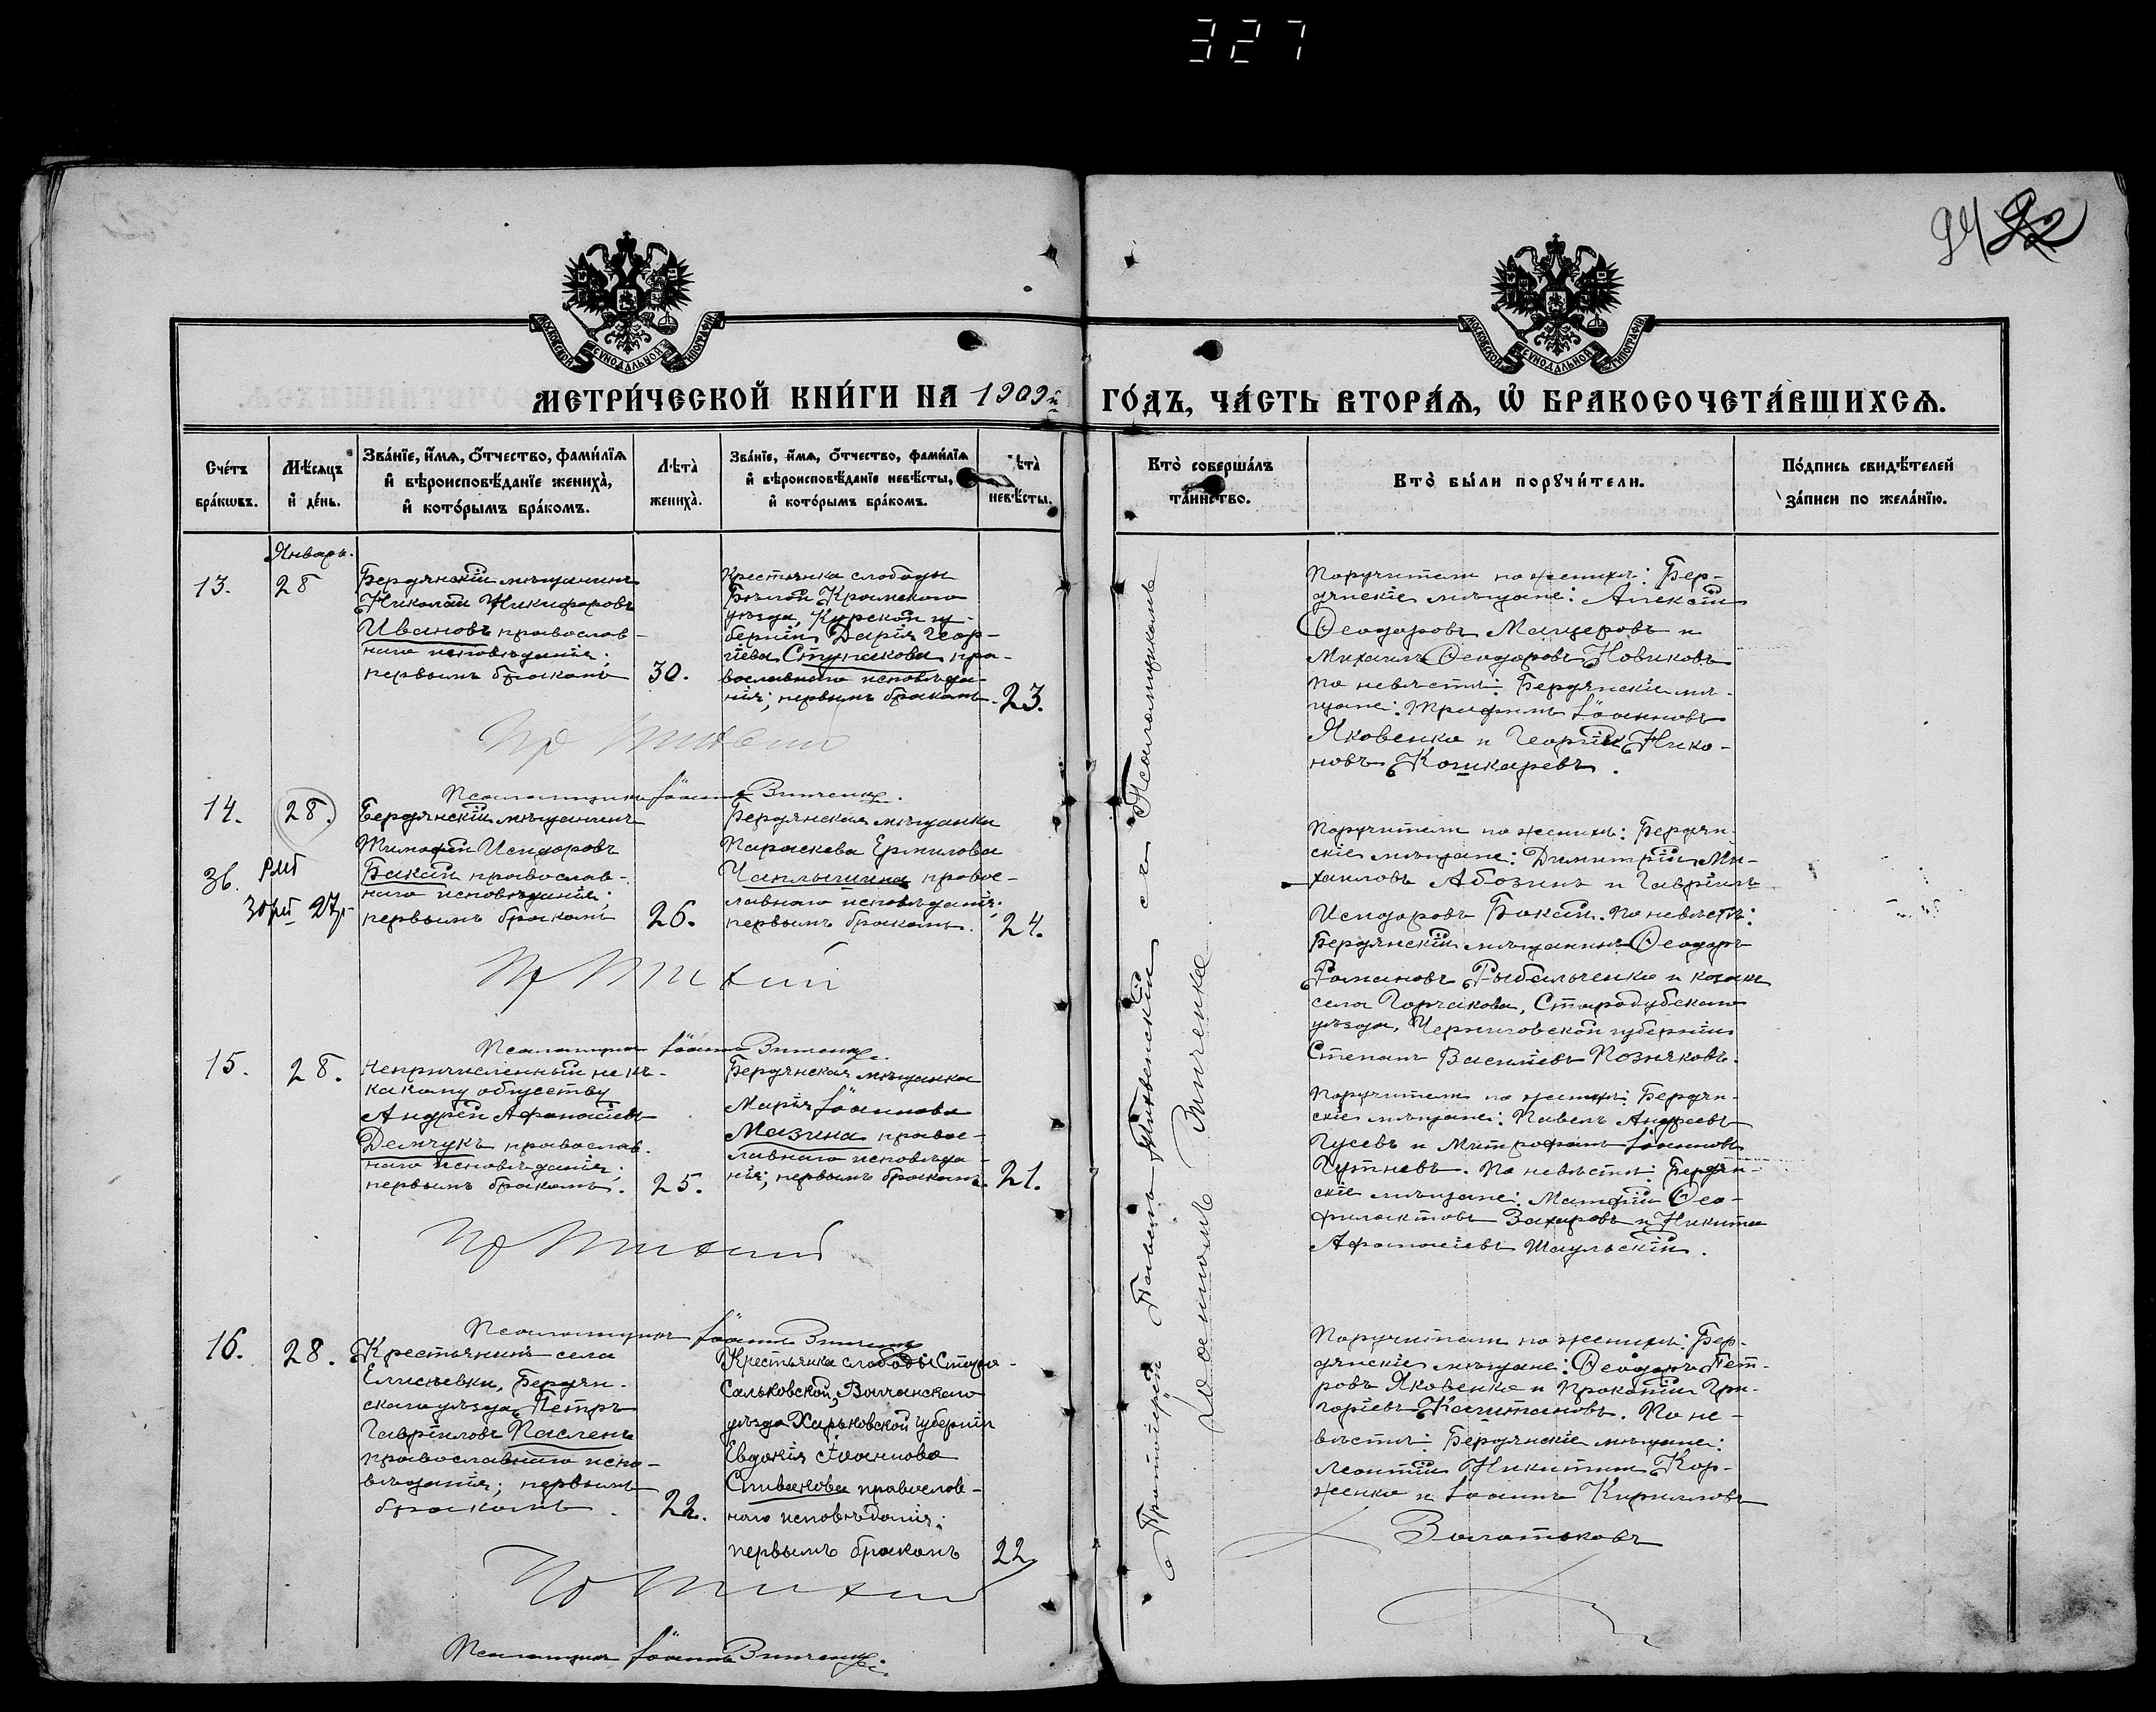 327
94 22
МОСКОВСКОЙ СУНОДАЛЬНОЙ ТИПОГРАФІИ
МОСКОВСКОЙ СУНОДАЛЬНОЙ ТИПОГРАФІИ
МЕТРИ́ЧЕСКОЙ КНИ́ГИ НА 1909й ГО́ДЪ, ЧА́СТЬ ВТОРА́Ѧ, Ѽ БРАКОСОЧЕТА́ВШИХСѦ.
Сче́тъ
бра́кѡвъ.
Мѣ́сяцъ
и҆ де́нь.
Зва́нїе, и҆́мѧ, ѻ҆́тчество, фами́лїѧ
и҆ вѣроисповѣ́данїе жениха̀,
и҆ кото́рымъ бра́комъ.
Лѣта̀
жениха̀.
Зва́нїе, и҆́мѧ, ѻ҆́тчество, фами́лїѧ
и҆ вѣроисповѣ́данїе невѣ́сты,
и҆ кото́рымъ бра́комъ.
ѣта̀
невѣ́сты.
Кто̀ соверша́лъ
та́инство.
Кто̀ бы́ли порꙋчи́тели.
По́дпись свидѣ́телей
за́писи по жела́нїю.
Январь.
13.
28
Бердянскій мѣщанинъ
Николай Никифоровъ
Ивановъ православ-
наго исповѣданія;
первымъ бракомъ
30.
Крестьянка слободы
Бѣлой
уѣзда, Курской гу-
берніи Дарія Геор-
гіева Ступакова пра-
вославнаго исповѣда-
нія; первымъ бракомъ.
23.
Поручители по женихѣ: Бер-
дянскіе мѣщане: Алексій
Ѳеодоровъ Мацеровъ и
Михаилъ Ѳеодоровъ Новиковъ
По невѣстѣ: Бердянскіе мѣ-
щане: Трифонъ Іоанновъ
Яковенко и Георгій Нико-
новъ Кошкаревъ.
Псаломщикъ Іоаннъ Зинченко.
14.
28.
Бердянскій мѣщанинъ
Тимофей Исидоровъ
Бакай православ-
наго исповѣданія;
первымъ бракомъ
26.
Бердянская мѣщанка
Параскева Ермилова
Чаплыгина правос-
лавнаго исповѣданія;
первымъ бракомъ.
24.
Поручители по женихѣ: Бердян-
скіе мѣщане: Димитрій Ми-
хаиловъ Абозинъ и Гавріилъ
Исидоровъ Бакай. По невѣстѣ:
Бердянскій мѣщанинъ Ѳеодоръ
Романовъ Рыбальченко и казакъ
села Горчакова, Стародубскаго
уѣзда, Черниговской губерніи
Степанъ Василіевъ Позняковъ.
Псаломщикъ Іоаннъ Зинченко.
15.
28.
Непричисленный ни къ
какому обществу
Андрей Афанасіевъ
Демчукъ православ-
наго исповѣданія;
первымъ бракомъ.
25.
Бердянская мѣщанка
Марія Іоаннова
Мазина правос-
лавнаго исповѣда-
нія; первымъ бракомъ.
21.
Поручители по женихѣ: Бердян-
скіе мѣщане: Павелъ Андреевъ
Гусевъ и Митрофанъ Іоанновъ
По невѣстѣ: Бердян-
скіе мѣщане: Матфій Ѳео-
филактовъ Захаровъ и Никита
Афанасіевъ Шаульскій.
Псаломщикъ Іоаннъ Зинченко
16.
28.
Крестьянинъ села
Елисѣевки, Бердян-
скаго уѣзда, Петръ
Гавріиловъ Пасленъ
православнаго испо-
вѣданія; первымъ
бракомъ.
22.
Крестьянка слободы Старо-
Салтовской, Волчанскаго
уѣзда Харьковской губерніи
Евдокія Іоаннова
Спивакова православ-
наго исповѣданія;
первымъ бракомъ
22.
Поручители по женихѣ: Бер-
дянскіе мѣщане: Ѳеодоръ Пет-
ровъ Яковенко и Прокопій Гри-
горіевъ Капитановъ. По не-
вѣстѣ: Бердянскіе мѣщане:
Леонтій Никитинъ Кор-
женко и Іоаннъ Кирилловъ
Золотьковъ
Псаломщикъ Іоаннъ Зинченко.
Протоіерей Павелъ Тихвинскій съ Псаломщикомъ
Іоанномъ Зинченко